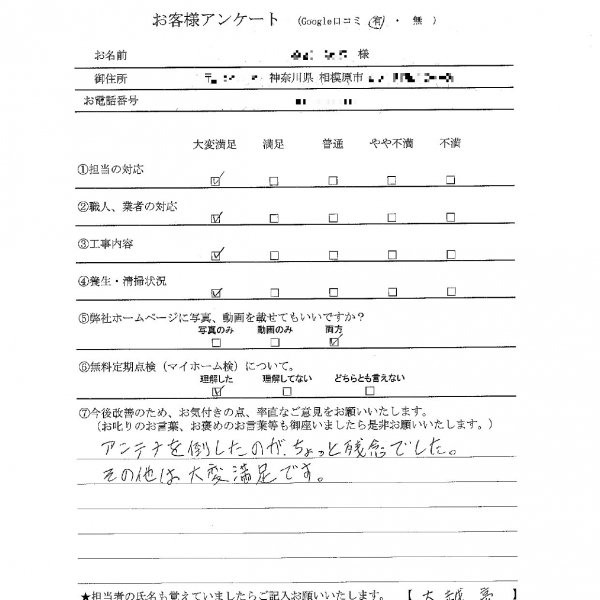 お客様アンケート （Google口コミ 有 ・ 無 ）
お名前 様
御住所 〒 神奈川県 相模原市
お電話番号
大変満足 満足 普通 やや不満 不満
①担当の対応
②職人、業者の対応
③工事内容
④養生・清掃状況
⑤弊社ホームページに写真、動画を載せてもいいですか？
写真のみ 動画のみ 両方
⑥無料定期点検（マイホーム検）について。
理解した 理解してない どちらとも言えない
⑦今後改善のため、お気付きの点、率直なご意見をお願いいたします。
（お叱りのお言葉、お褒めのお言葉等も御座いましたら是非お願いいたします。）
アンテナを倒したのが、ちょっと残念でした。
その他は大変満足です。
★担当者の氏名も覚えていましたらご記入お願いいたします。 【 大 】